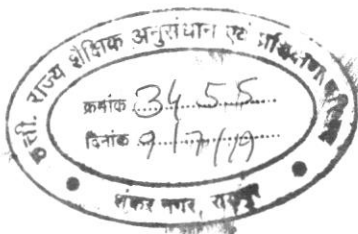 छत्ती. राज्य शैक्षिक अनुसंधान एवं प्रशिक्षण परिषद
क्रमांक 3455
दिनांक 9/7/19
शंकर नगर, रायपुर